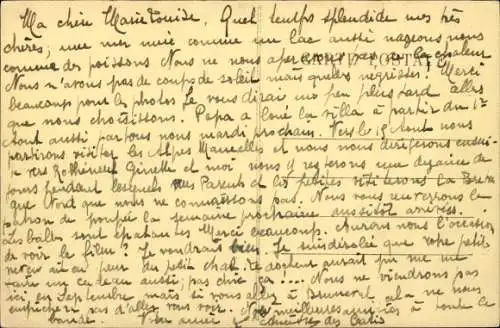 Ma chère Marie Louise, Quel temps splendide mes très
chères, une mer unie comme un lac aussi nageons nous
comme des poissons Nous ne nous apercevons pas de la chaleur
Nous n'avons pas de coups de soleil mais quelles négresses! Merci
beaucoup pour les photos Je vous dirai un peu plus tard celles
que nous choisissons. Papa a loué la villa à partir du 1er
Août aussi partons nous mardi prochain. Vers le 15 Août nous
partirons visiter les Alpes Mancelles et nous nous
Ginette et moi nous y resterons une dizaine de
jours pendant lesquels nos Parents et les petites visiterons la Bretagne
que Nord que nous ne connaissons pas. Nous vous renverrons le
patron de poupée la semaine prochaine aussitôt arrivées.
Les balles sont épatantes Merci beaucoup. Aurons nous l'occasion
de voir le film? Je voudrais bien. Je suis désolée que votre petit
neveu ait eu peur du petit chat, ce docteur aurait pu me
un cadeau aussi, pas chic ça.... Nous ne viendrons pas
ici en Septembre mais si vous allez à cela ne nous
empêchera pas d'aller vous voir. Nos meilleures amitiés à toute la
bande. Votre amie